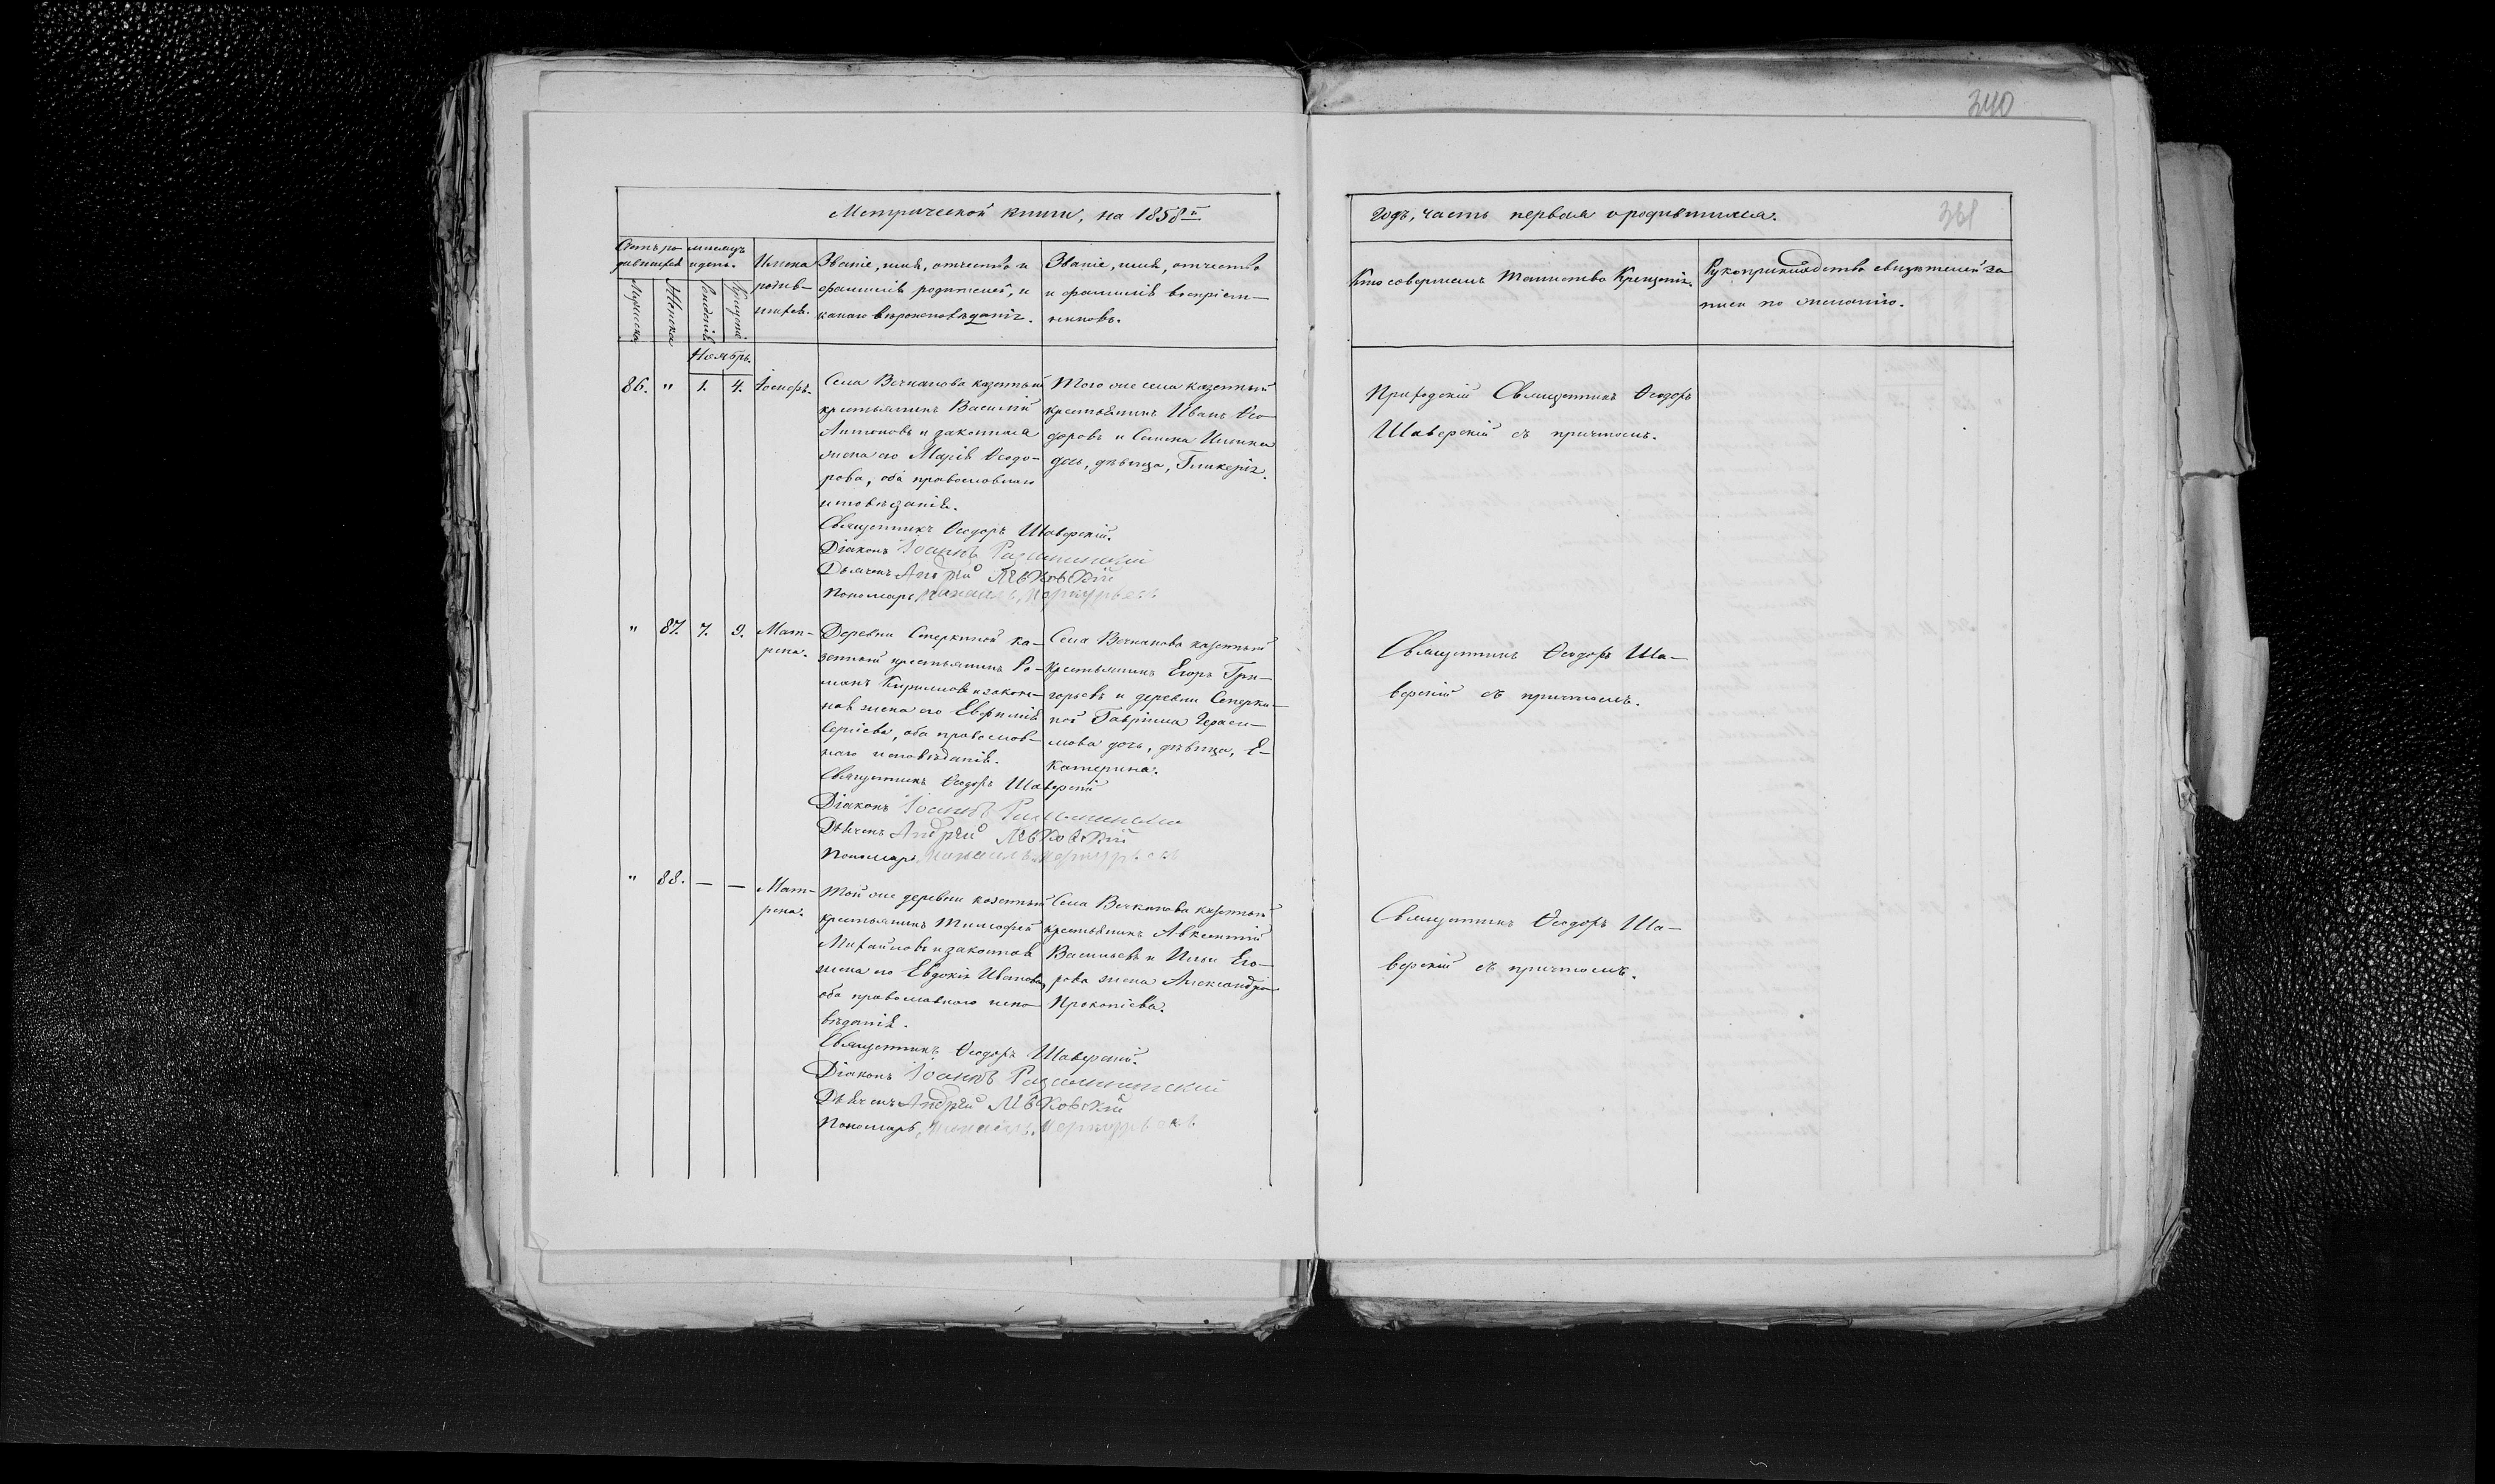 340
Метрической книги, на 1858й
годъ, часть первая о родившихся.
381
Счетъ ро-
дившихся
мѣсяцъ
и день.
Мужеска
Женска
Рожденія
Крещенія
Имена
родив-
шихся.
Званіе, имя, отчество и
фамилія родителей, и
какого вѣроисповѣданія.
Званіе, имя, отчество
и фамилія воспріем-
никовъ.
Кто совершалъ таинство Крещенія.
Рукоприкладство свидѣтелей за-
писи по желанію.
Ноябрь.
86. " 1. 4.
Іосифъ.
Села Вечканова казенный
крестьянинъ Василій
Антоновъ и законная
жена его Марія Ѳедо-
рова, оба православнаго
исповѣданія.
Священникъ Ѳеодоръ Шаверскій.
Діаконъ Іоаннъ
Дьячекъ Андрей
Пономарь Михаилъ Меркурьевъ
Того же села казенный
крестьянинъ Иванъ Ѳео-
доровъ и Семена Ильина
дочь, дѣвица, Гликерія.
Приходскій Священникъ Ѳеодоръ
Шаверскій съ причтомъ.
" 87. 7. 9.
Мат-
рена.
Деревни Сперкиной ка-
зенный крестьянинъ Ро-
манъ Кирилловъ и закон-
ная жена его Евфимія
Сергіева, оба православ-
наго исповѣданія.
Священникъ Ѳеодоръ Шаверскій
Діаконъ Іоаннъ
Дьячекъ Андрей
Пономарь Михаилъ Меркурьевъ
Села Вечканова казенный
крестьянинъ Егоръ Гри-
горьевъ и деревни Сперки-
ной Гавріила Гераси-
мова дочь, дѣвица, Е-
катерина.
Священникъ Ѳеодоръ Ша-
верскій съ причтомъ.
" 88. — —
Мат-
рена.
Той же деревни казенный
крестьянинъ Тимофей
Михайловъ и законная
жена его Евдокія Иванова,
оба православнаго испо-
вѣданія.
Священникъ Ѳеодоръ Шаверскій.
Діаконъ Іоаннъ
Дьячекъ Андрей
Пономарь Михаилъ Меркурьевъ
Села Вечканова казенный
крестьянинъ Авксентій
Васильевъ и Ильи Его-
рова жена Александра
Прокопіева.
Священникъ Ѳеодоръ Ша-
верскій съ причтомъ.